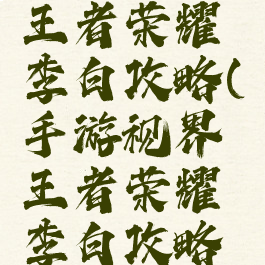 王者荣耀
李白攻略(
手游视界
王者荣耀
李白攻略